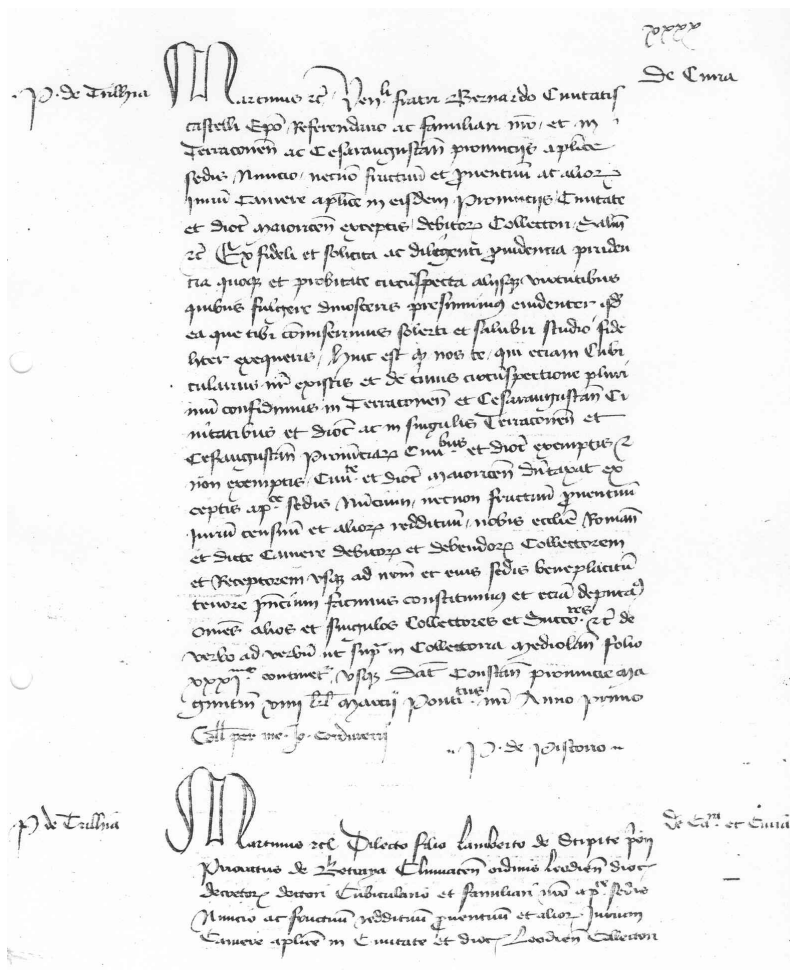 xxxx
De Curia
P. de Trilhia
Martinus etc. Ven.li fratri Bernardo Civitatis
castelli Epo, Referendario ac familiari nro, et in
Terraconen ac Cesaraugustan provinciis aplice
sedis Nuncio, necno fructuu et proventuu ac alior
iuriu Camere aplice in eisdem Provinciis, Civitate
et dioc Maioricen exceptis, debitor Collectori, Salm
etc. Ex fideli et solicita ac diligenti providentia pruden
tia quoq et probitate circuspecta aliisq virtutibus
quibus fulgere dinosceris presumimus evidenter qd
ea que tibi comiserimus solerti et salubri studio fide
liter exequeris, Hinc est q nos te, qui eciam Cubi
cularius nr existis et de cuius circuspectione pluri
mu confidimus in Terraconen et Cesaraugustan Ci
vitatibus et dioc ac in singulis Terraconen et
Cesaraugustan Provinciar Civi.bus et dioc exemptis et
non exemptis, Civi.te et dioc Maioricen dutaxat ex
ceptis ap.ce sedis Nuncium, necnon fructuu proventuu
Iuriu censuu et alior reddituu, nobis ecclie Roman
et dicte Camere debitor et debendor Collectorem
et Receptorem usq ad nrm et eius sedis beneplacitu
tenore pncium facimus constituimus et ecia deputa
omes alios et singulos Collectores et Succo.res etc de
verbo ad verbu ut sup in Collectoria Mediolan folio
xxxi continet, usq Dat Constan provincie Ma
guntin viiii kl Marcii Ponti.tus nri Anno Primo
Coll per me Jo. Cordurerii
P. de Pistorio
P de Trilhia
de Ca.ra et Curia
Martinus etc Dilecto filio Lamberto de Stipite pori
Prioratus de Bertreya Cluniacen ordinis Leodien dioc
decretor doctori Cubiculario et familiari nro ap.ce sedis
Nuncio ac fructuu reddituu proventuu et alior Iurium
Camere aplice in Civitate et dioc Leodien Collectori